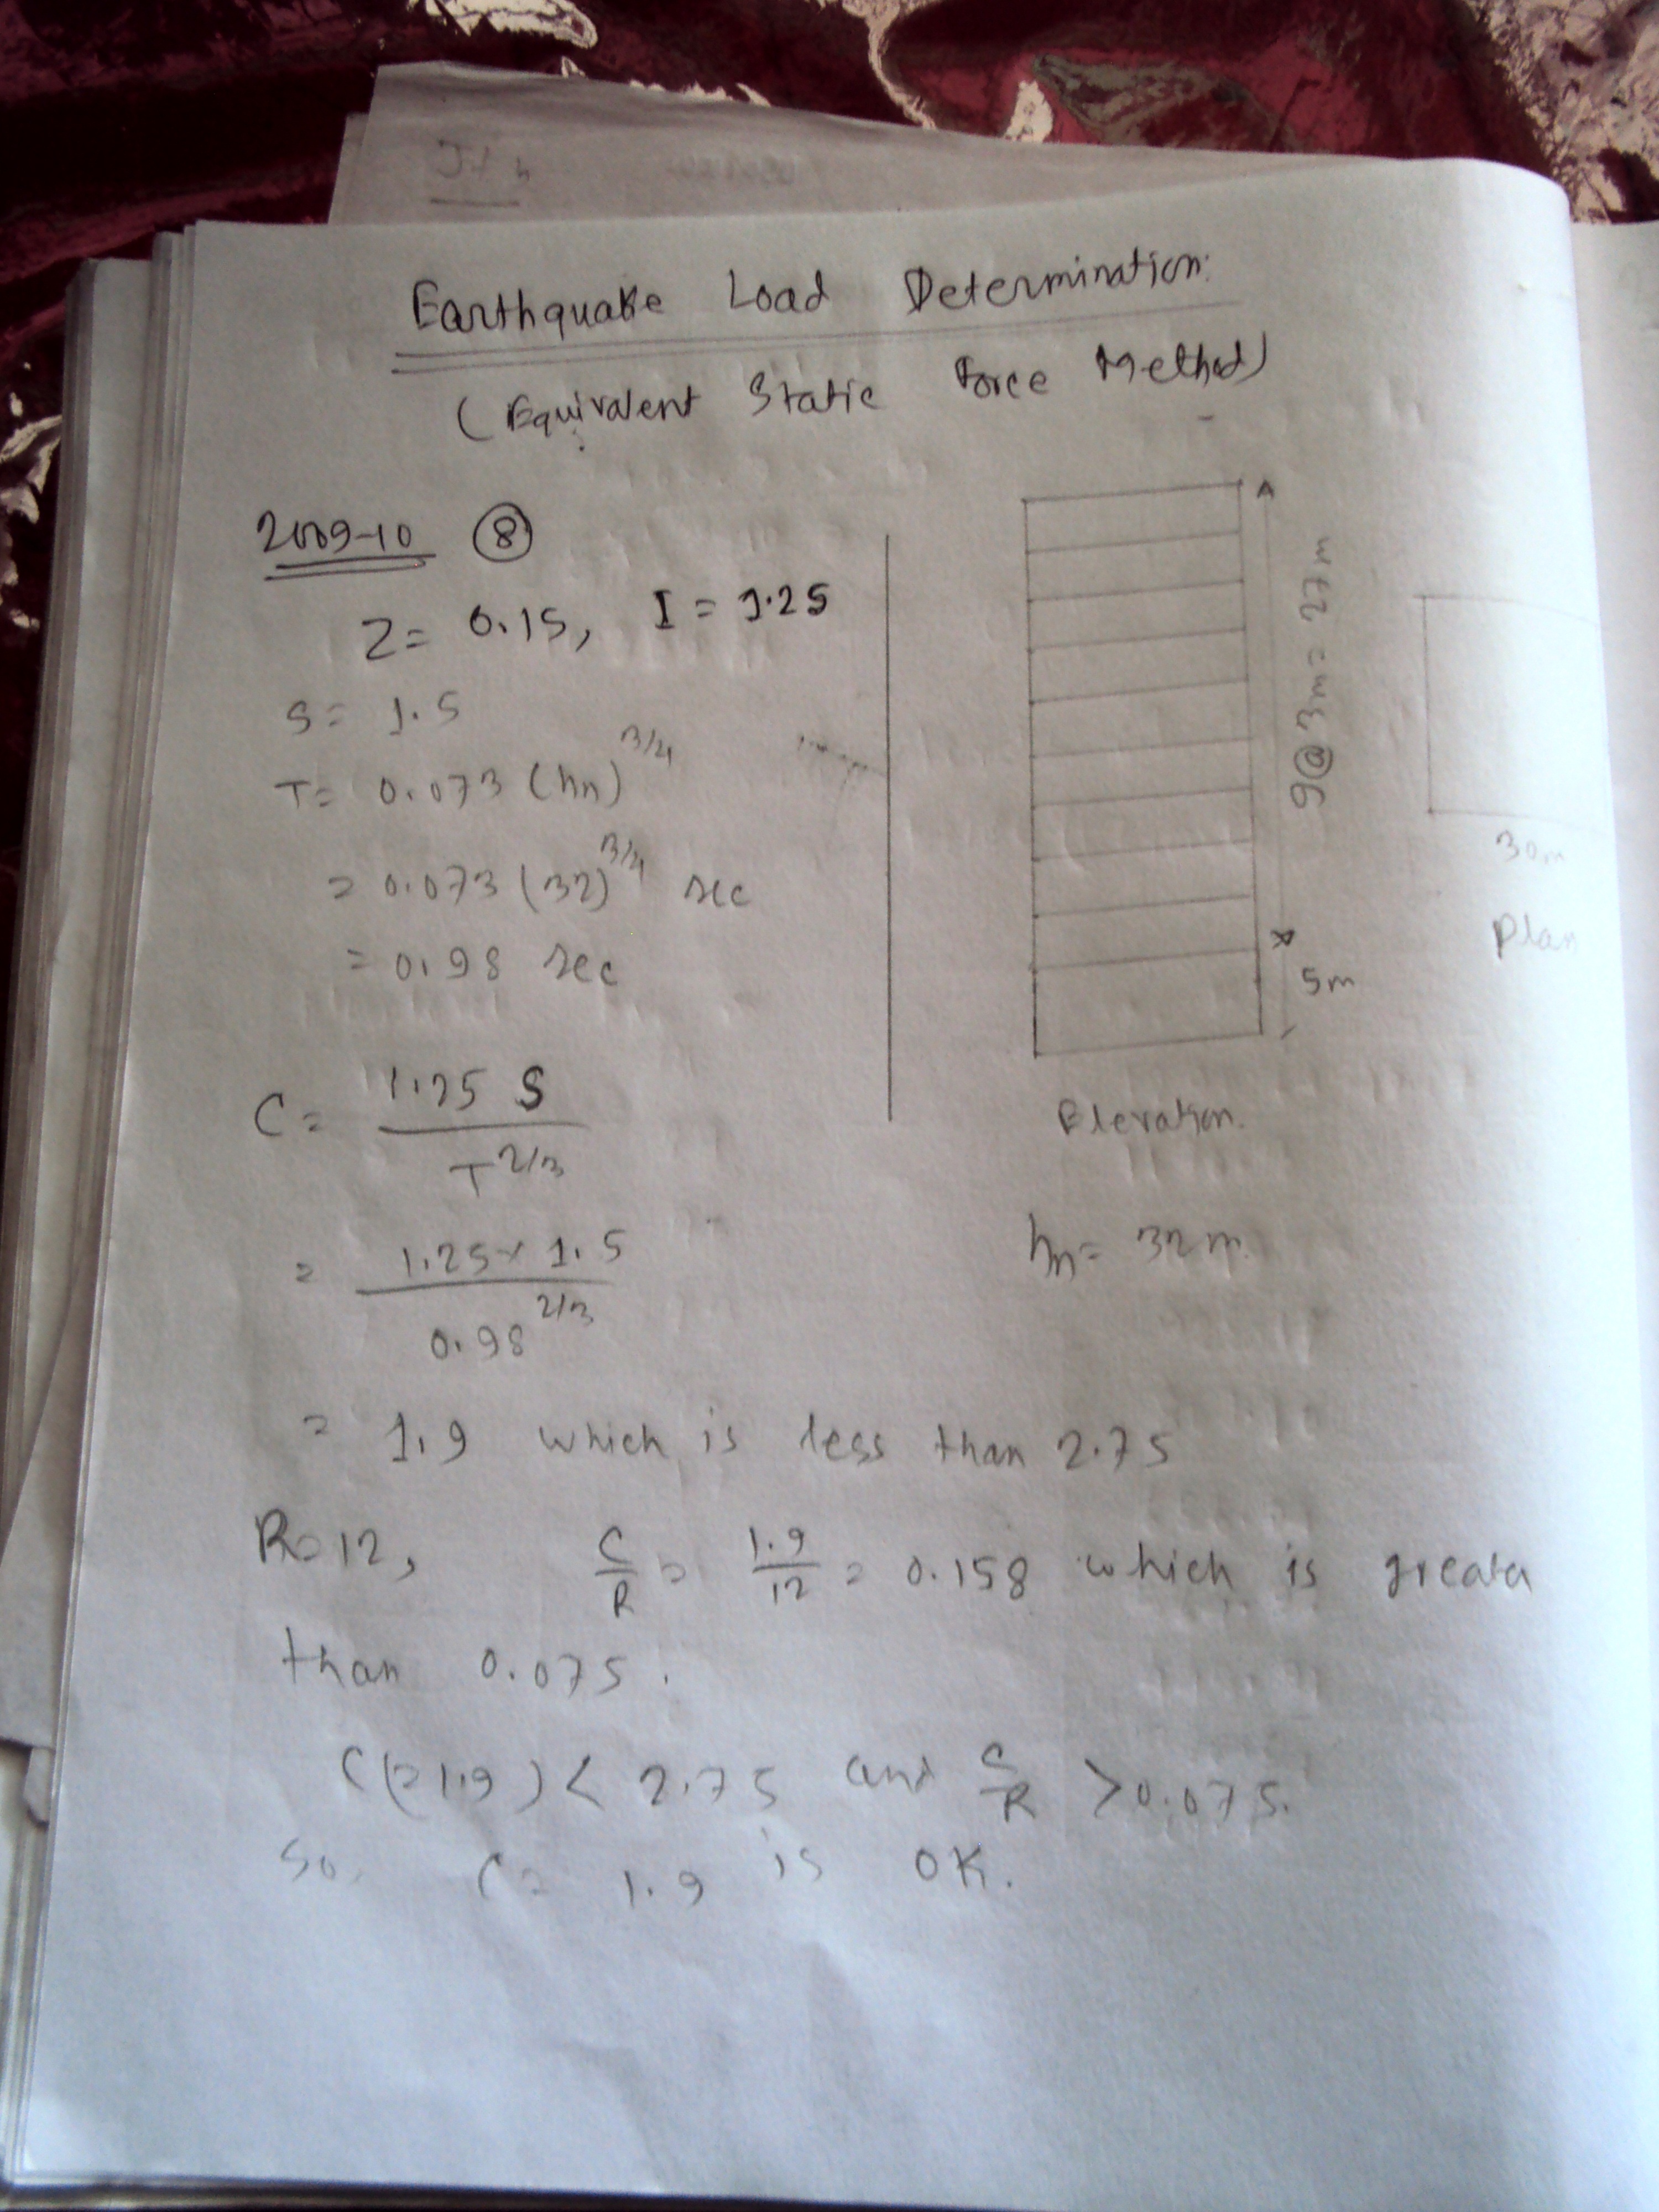 Earthquake Load Determination:
(Equivalent Static Force Method)
2009-10 ⑧
Z = 0.15, I = 1.25
S = 1.5
T = 0.073 (hn)^3/4
= 0.073 (32)^3/4 sec
= 0.98 sec
C = 1.25 S / T^2/3
= 1.25 × 1.5 / 0.98^2/3
= 1.9 which is less than 2.75
R = 12, C/R = 1.9/12 = 0.158 which is greater
than 0.075.
C (= 1.9) < 2.75 and C/R > 0.075.
So, C = 1.9 is OK.
9@3m = 27m
5m
Elevation.
hn = 32m.
30m
Plan